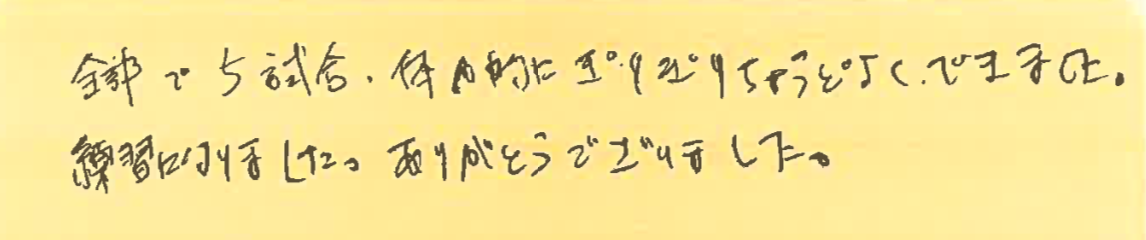 全部で5試合、体力的にギリギリちょうどよくできました。
練習になりました。ありがとうございました。